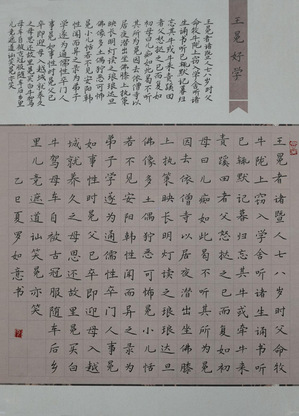 王冕好学
王冕者诸暨人七八岁时父
命牧牛陇上窃入学舍听诸
生诵书听已辄默记暮归
忘其牛或牵牛来责蹊田
者父怒挞之已而复如
初母曰儿痴如此曷不听
其所为冕因去依僧寺以
居夜潜出坐佛膝上执策
映长明灯读之琅琅达旦
佛像多土偶狞恶可怖
冕小儿恬若不见安阳韩
性闻而异之录为弟子
学遂为通儒性卒门人
事冕如事性时冕父已
卒即迎母入越城就养久之
母思还故里冕买白牛驾母车
自被古冠服随车后乡里
儿竞遮道讪笑冕亦笑
王冕者诸暨人七八岁时父命牧
牛陇上窃入学舍听诸生诵书听
已辄默记暮归忘其牛或牵牛来
责蹊田者父怒挞之已而复如初
母曰儿痴如此曷不听其所为冕
因去依僧寺以居夜潜出坐佛膝
上执策映长明灯读之琅琅达旦
佛像多土偶狞恶可怖冕小儿恬
若不见安阳韩性闻而异之录为
弟子学遂为通儒性卒门人事冕
如事性时冕父已卒即迎母入越
城就养久之母思还故里冕买白
牛驾母车自被古冠服随车后乡
里儿竞遮道讪笑冕亦笑
乙巳夏罗如意书